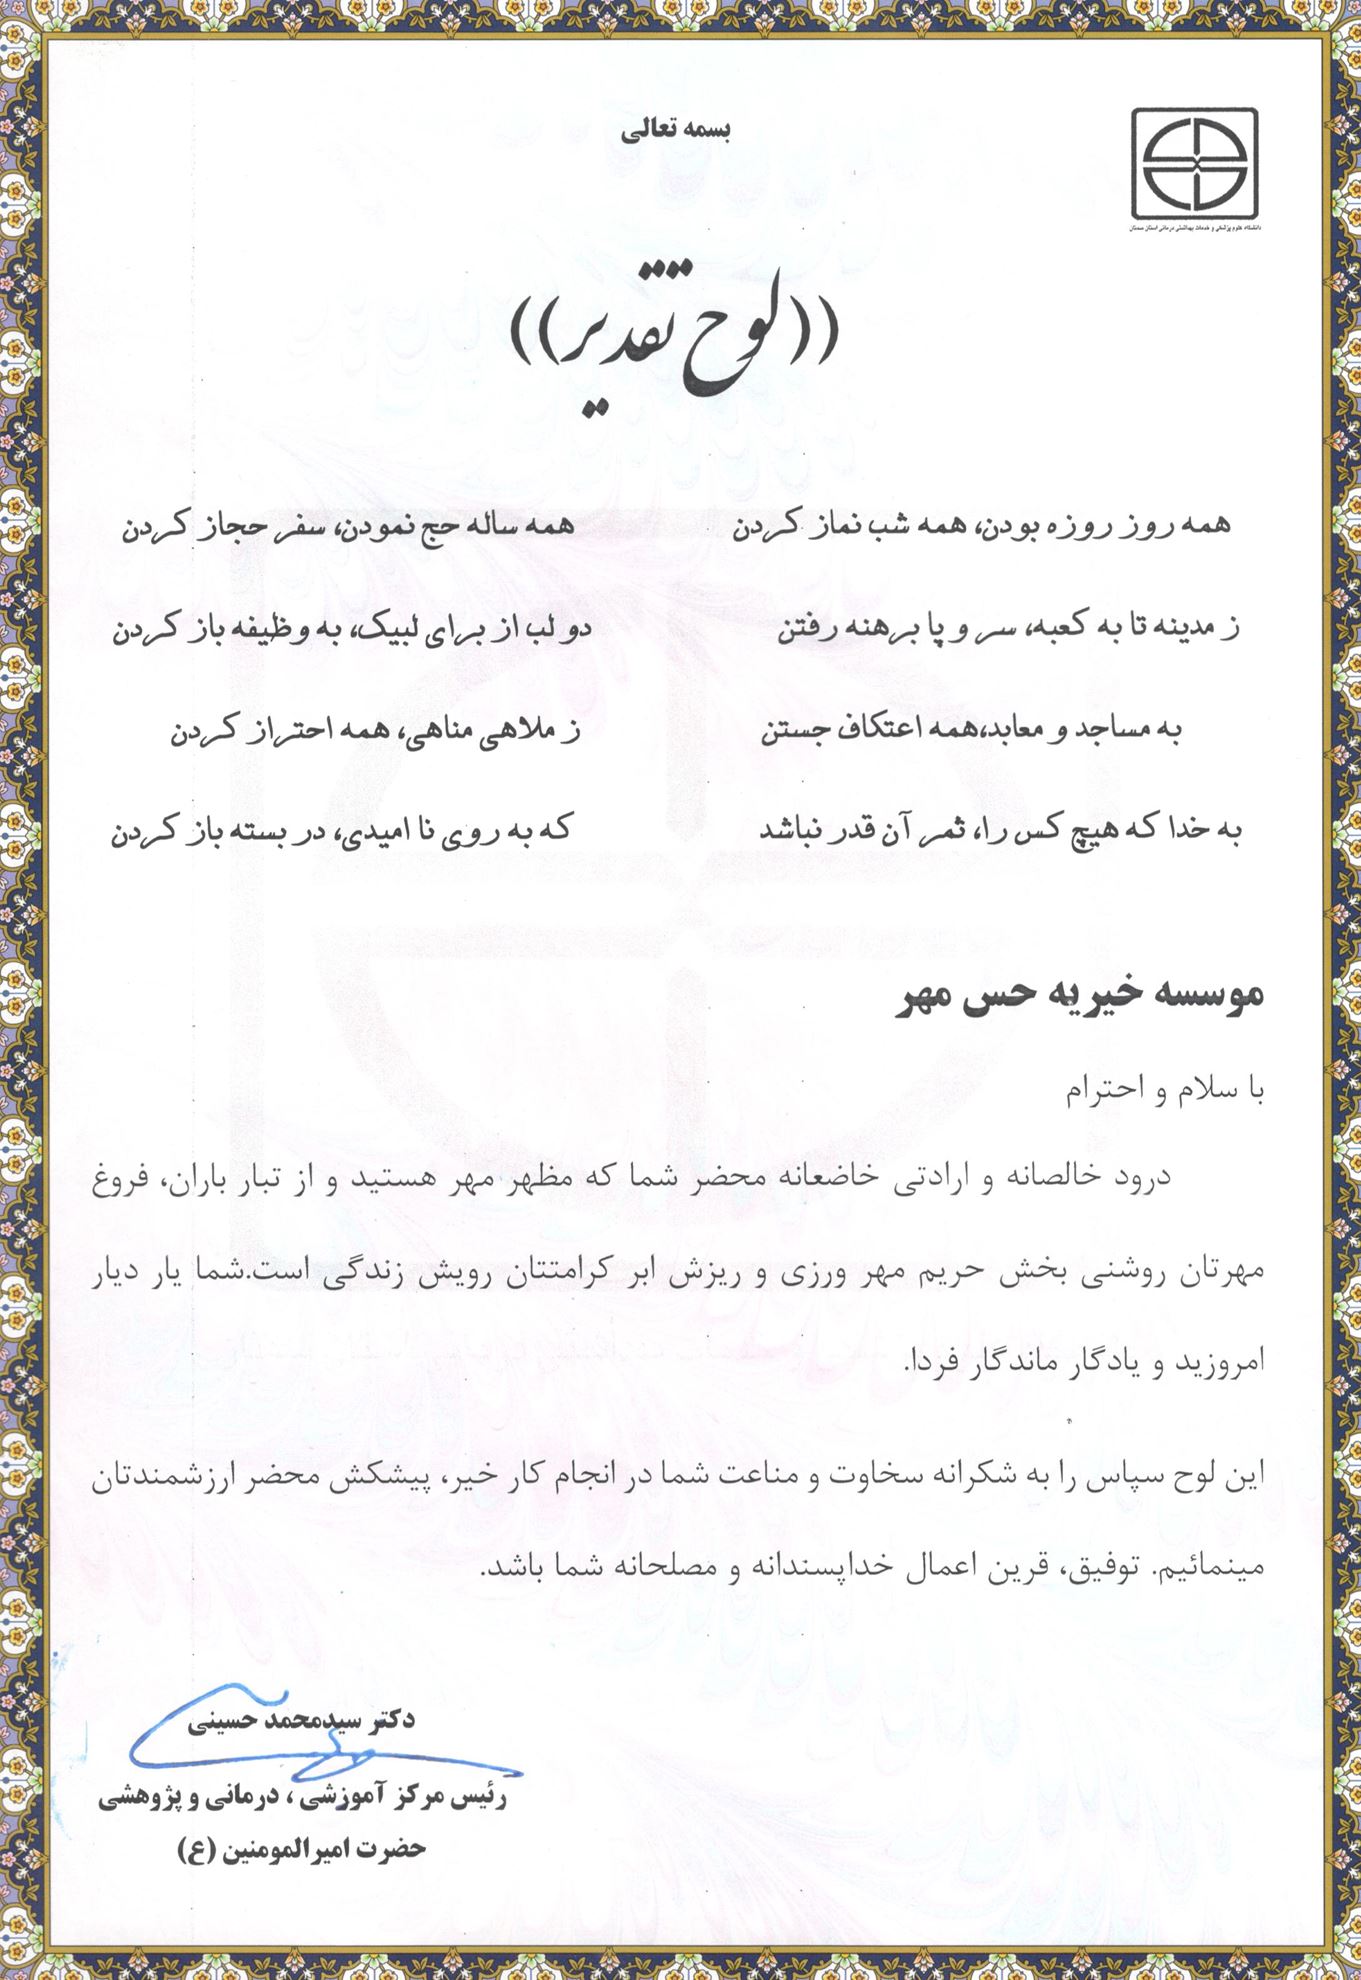 بسمه تعالی
دانشگاه علوم پزشکی و خدمات بهداشتی درمانی استان سمنان
((لوح تقدیر))
همه روز روزه بودن، همه شب نماز کردن همه ساله حج نمودن، سفر حجاز کردن
ز مدینه تا به کعبه، سر و پا برهنه رفتن دو لب از برای لبیک، به وظیفه باز کردن
به مساجد و معابد،همه اعتکاف جستن ز ملاهی مناهی، همه احتراز کردن
به خدا که هیچ کس را، ثمر آن قدر نباشد که به روی نا امیدی، در بسته باز کردن
موسسه خیریه حس مهر
با سلام و احترام
درود خالصانه و ارادتی خاضعانه محضر شما که مظهر مهر هستید و از تبار باران، فروغ
مهرتان روشنی بخش حریم مهر ورزی و ریزش ابر کرامتتان رویش زندگی است.شما یار دیار
امروزید و یادگار ماندگار فردا.
این لوح سپاس را به شکرانه سخاوت و مناعت شما در انجام کار خیر، پیشکش محضر ارزشمندتان
مینمائیم. توفیق، قرین اعمال خداپسندانه و مصلحانه شما باشد.
دکتر سیدمحمد حسینی
رئیس مرکز آموزشی ، درمانی و پژوهشی
حضرت امیرالمومنین (ع)